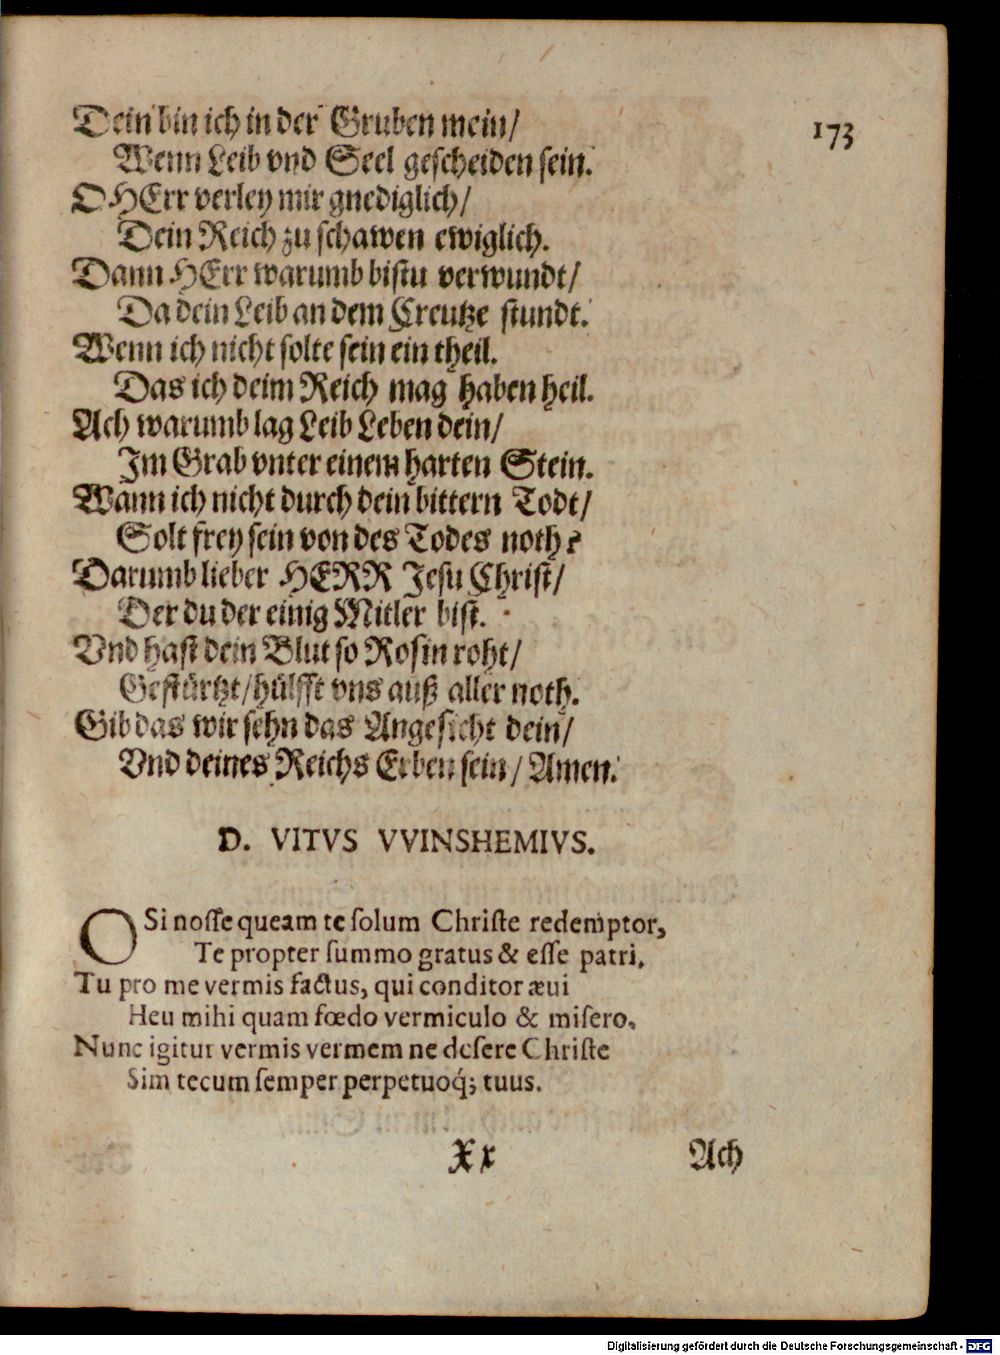 173
Dein bin ich in der Gruben mein/
Wenn Leib vnd Seel gescheiden sein.
O HErr verley mir gnediglich/
Dein Reich zu schawen ewiglich.
Dann HErr warumb bistu verwundt/
Da dein Leib an dem Creutze stundt.
Wenn ich nicht solte sein ein theil.
Das ich deim Reich mag haben heil.
Ach warumb lag Leib Leben dein/
Im Grab vnter einem harten Stein.
Wann ich nicht durch dein bittern Todt/
Solt frey sein von des Todes noth?
Darumb lieber HERR Jesu Christ/
Der du der einig Mitler bist.
Vnd hast dein Blut so Rosin roht/
Gestürtzt/hülfft vns auß aller noth.
Gib das wir sehn das Angesicht dein/
Vnd deines Reichs Erben sein/ Amen.
D. VITVS VVINSHEMIVS.
O Si nosse queam te solum Christe redemptor,
Te propter summo gratus & esse patri.
Tu pro me vermis factus, qui conditor æui
Heu mihi quam fœdo vermiculo & misero.
Nunc igitur vermis vermem ne desere Christe
Sim tecum semper perpetuoq́; tuus.
Xx
Ach
Digitalisierung gefördert durch die Deutsche Forschungsgemeinschaft - DFG